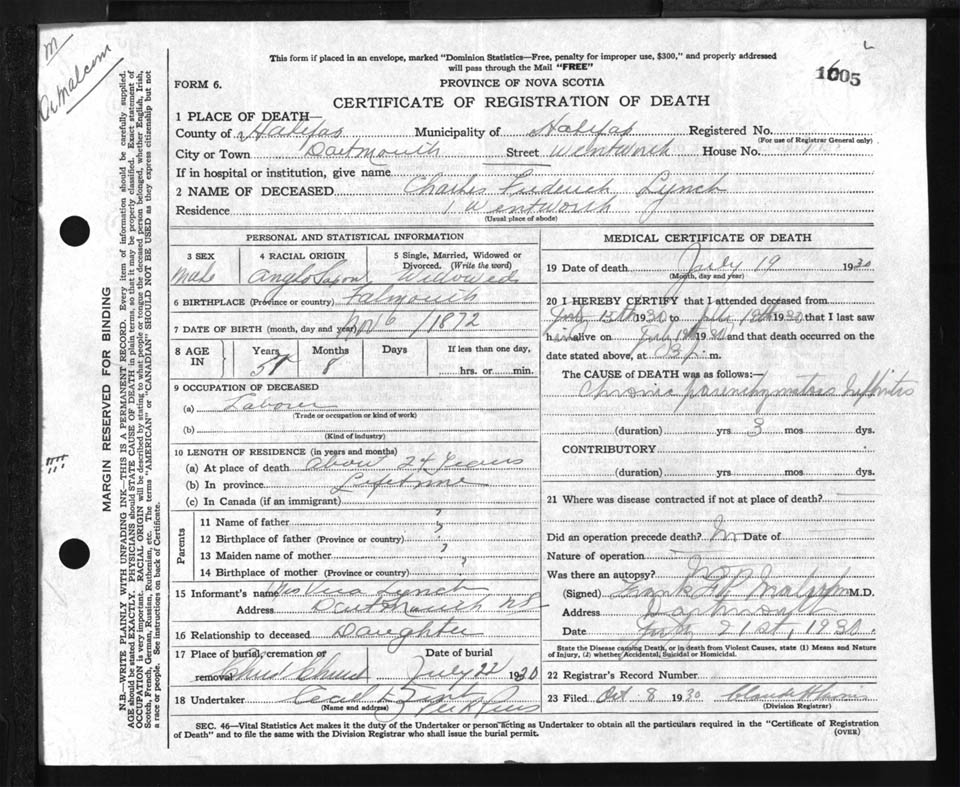 This form if placed in an envelope, marked "Dominion Statistics—Free, penalty for improper use, $300," and properly addressed
will pass through the Mail "FREE"
FORM 6.
PROVINCE OF NOVA SCOTIA
1605
CERTIFICATE OF REGISTRATION OF DEATH
1 PLACE OF DEATH—
County of Halifax Municipality of Halifax Registered No.
(For use of Registrar General only)
City or Town Dartmouth Street Wentworth House No. 1
If in hospital or institution, give name
2 NAME OF DECEASED Charles Frederick Lynch
Residence 1 Wentworth
(Usual place of abode)
PERSONAL AND STATISTICAL INFORMATION
3 SEX
Male
4 RACIAL ORIGIN
Anglo Saxon
5 Single, Married, Widowed or
Divorced. (Write the word)
Widowed
6 BIRTHPLACE (Province or country) Falmouth
7 DATE OF BIRTH (month, day and year) Nov 6 /1872
8 AGE IN
Years 57
Months 8
Days
If less than one day,
hrs. or min.
9 OCCUPATION OF DECEASED
(a) Laborer
(Trade or occupation or kind of work)
(b)
(Kind of industry)
10 LENGTH OF RESIDENCE (in years and months)
(a) At place of death about 24 years
(b) In province Lifetime
(c) In Canada (if an immigrant)
Parents
11 Name of father ?
12 Birthplace of father (Province or country) ?
13 Maiden name of mother ?
14 Birthplace of mother (Province or country) ?
15 Informant's name Mrs Vera Lynch
Address Dartmouth NS
16 Relationship to deceased Daughter
17 Place of burial, cremation or
removal Christ Church
Date of burial
July 22 1930
18 Undertaker Cecil
(Name and address)
MEDICAL CERTIFICATE OF DEATH
19 Date of death July 19 1930
(Month, day and year)
20 I HEREBY CERTIFY that I attended deceased from
July 15th 1930 to July 19th 1930 that I last saw
him alive on July 19th 1930 and that death occurred on the
date stated above, at m.
The CAUSE of DEATH was as follows:—
Chronic parenchymatous Nephritis
(duration) yrs 3 mos dys.
CONTRIBUTORY
(duration) yrs. mos. dys.
21 Where was disease contracted if not at place of death?
Did an operation precede death? No Date of
Nature of operation
Was there an autopsy? No
(Signed) Frank M.D.
Address Dartmouth
Date July 21st, 1930.
State the Disease causing Death, or in death from Violent Causes, state (1) Means and Nature
of Injury, (2) whether Accidental, Suicidal or Homicidal.
22 Registrar's Record Number
23 Filed Oct 8 1930
(Division Registrar)
SEC. 46—Vital Statistics Act makes it the duty of the Undertaker or person acting as Undertaker to obtain all the particulars required in the "Certificate of Registration
of Death" and to file the same with the Division Registrar who shall issue the burial permit.
(OVER)
MARGIN RESERVED FOR BINDING
N.B.—WRITE PLAINLY WITH UNFADING INK—THIS IS A PERMANENT RECORD. Every item of information should be carefully supplied.
AGE should be stated EXACTLY. PHYSICIANS should STATE CAUSE OF DEATH in plain terms, so that it may be properly classified. Exact statement of
OCCUPATION is very important. RACIAL ORIGIN will be described by stating to what people or tongue the deceased person belonged, whether English, Irish,
Scotch, French, German, Russian, Ruthenian, etc. The terms "AMERICAN" or "CANADIAN" SHOULD NOT BE USED as they express citizenship but not
a race or people. See instructions on back of Certificate.